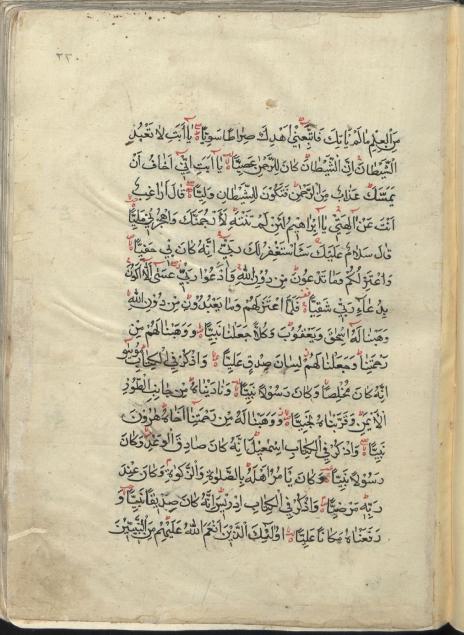 ٢٢٠
مِنَ الْعِلْمِ مَا لَمْ يَاْتِكَ فَاتَّبِعْنِي اَهْدِكَ صِرَاطًا سَوِيًّا يَا اَبَتِ لَا تَعْبُدِ
الشَّيْطَانَ اِنَّ الشَّيْطَانَ كَانَ لِلرَّحْمٰنِ عَصِيًّا يَا اَبَتِ اِنِّي اَخَافُ اَنْ
يَمَسَّكَ عَذَابٌ مِنَ الرَّحْمٰنِ فَتَكُونَ لِلشَّيْطَانِ وَلِيًّا قَالَ اَرَاغِبٌ
اَنْتَ عَنْ اٰلِهَتِي يَا اِبْرٰاهِيمُ لَئِنْ لَمْ تَنْتَهِ لَاَرْجُمَنَّكَ وَاهْجُرْنِي مَلِيًّا
قَالَ سَلَامٌ عَلَيْكَ سَاَسْتَغْفِرُ لَكَ رَبِّي اِنَّهُ كَانَ بِي حَفِيًّا
وَاَعْتَزِلُكُمْ وَمَا تَدْعُونَ مِنْ دُونِ اللّٰهِ وَاَدْعُوا رَبِّي عَسٰى اَلَّا اَكُونَ
بِدُعَاءِ رَبِّي شَقِيًّا فَلَمَّا اعْتَزَلَهُمْ وَمَا يَعْبُدُونَ مِنْ دُونِ اللّٰهِ
وَهَبْنَا لَهُ اِسْحٰقَ وَيَعْقُوبَ وَكُلًّا جَعَلْنَا نَبِيًّا وَوَهَبْنَا لَهُمْ مِنْ
رَحْمَتِنَا وَجَعَلْنَا لَهُمْ لِسَانَ صِدْقٍ عَلِيًّا وَاذْكُرْ فِي الْكِتَابِ مُوسٰى
اِنَّهُ كَانَ مُخْلَصًا وَكَانَ رَسُولًا نَبِيًّا وَنَادَيْنَاهُ مِنْ جَانِبِ الطُّورِ
الْاَيْمَنِ وَقَرَّبْنَاهُ نَجِيًّا وَوَهَبْنَا لَهُ مِنْ رَحْمَتِنَا اَخَاهُ هٰرُونَ
نَبِيًّا وَاذْكُرْ فِي الْكِتَابِ اِسْمٰعِيلَ اِنَّهُ كَانَ صَادِقَ الْوَعْدِ وَكَانَ
رَسُولًا نَبِيًّا وَكَانَ يَاْمُرُ اَهْلَهُ بِالصَّلٰوةِ وَالزَّكٰوةِ وَكَانَ عِنْدَ
رَبِّهِ مَرْضِيًّا وَاذْكُرْ فِي الْكِتَابِ اِدْرِيسَ اِنَّهُ كَانَ صِدِّيقًا نَبِيًّا وَ
رَفَعْنَاهُ مَكَانًا عَلِيًّا اُولٰئِكَ الَّذِينَ اَنْعَمَ اللّٰهُ عَلَيْهِمْ مِنَ النَّبِيّٖنَ